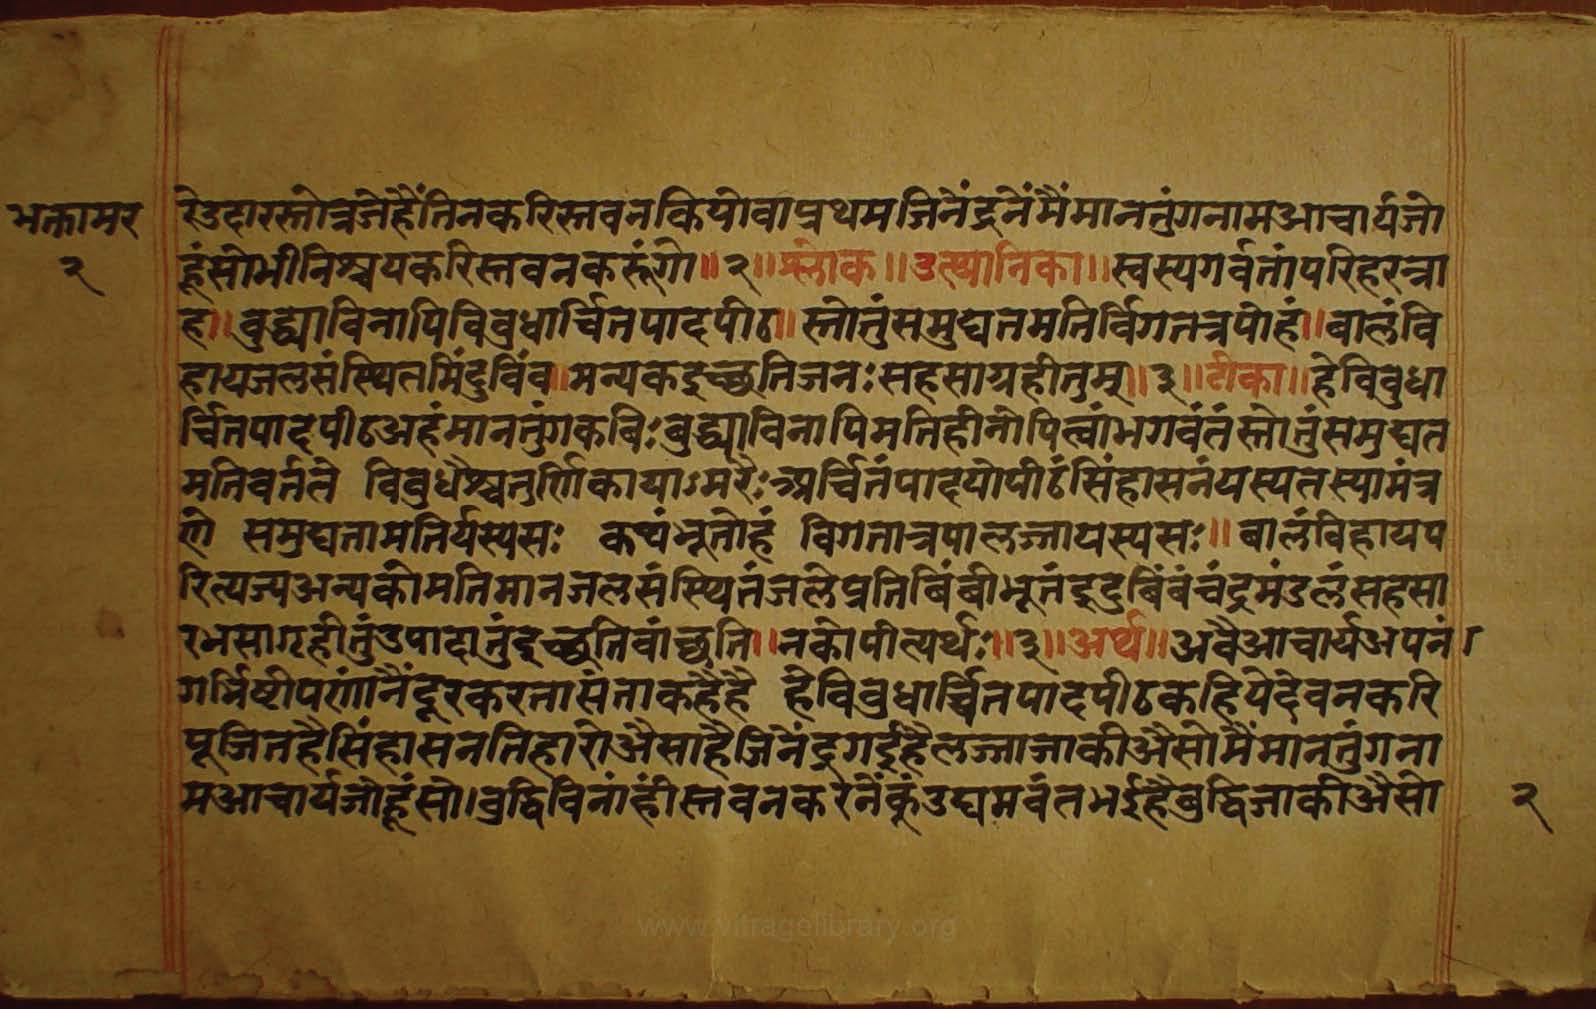 भक्तामर
२
रेउदारस्तोत्रजेहैंतिनकरिस्तवनकियोवाप्रथमजिनेंद्रनेंमैंमानतुंगनामआचार्यजो
हूंसोभीनिश्चयकरिस्तवनकरूंगो॥२॥श्लोक॥उत्थानिका॥स्वस्यगर्वतांपरिहरन्ना
ह॥बुद्ध्याविनापिविबुधार्चितपादपीठ॥स्तोतुंसमुद्यतमतिर्विगतत्रपोहं॥बालंवि
हायजलसंस्थितमिंदुबिंब॥मन्यकइच्छतिजनःसहसाग्रहीतुम्॥३॥टीका॥हेविबुधा
र्चितपादपीठअहंमानतुंगकविःबुद्ध्याविनापिमतिहीनोपित्वांभगवंतंस्तोतुंसमुद्यत
मतिवर्तते विबुधैश्चतुर्णिकायाऽमरैःअर्चितंपादयोपीठंसिंहासनंयस्यतस्यामंत्र
णे समुद्यतामतिर्यस्यसः कथंभूतोहं विगतात्रपालज्जायस्यसः॥बालंविहायप
रित्यज्यअन्यकोमतिमानजलसंस्थितंजलेप्रतिबिंबीभूतंइदुबिंबंचंद्रमंडलंसहसा
रभसागृहीतुंउपादातुंइच्छतिवांच्छति॥नकोपीत्यर्थः॥३॥अर्थ॥अवैआचार्यअपनं।
गर्भिष्टीपणांनैंदूरकरतासंताकहैहै हेविबुधार्च्चितपादपीठकहियेदेवनकरि
पूजितहैसिंहासनतिहारोअैसाहैजिनेंद्रगईहैलज्जाजाकीअैसोमैंमानतुंगना
मआचार्यजोहूंसो।बुद्धिविनांहीस्तवनकरनेंकूंउद्यमवंतभईहैबुद्धिजाकीअैसो
२
www.vitragelibrary.org